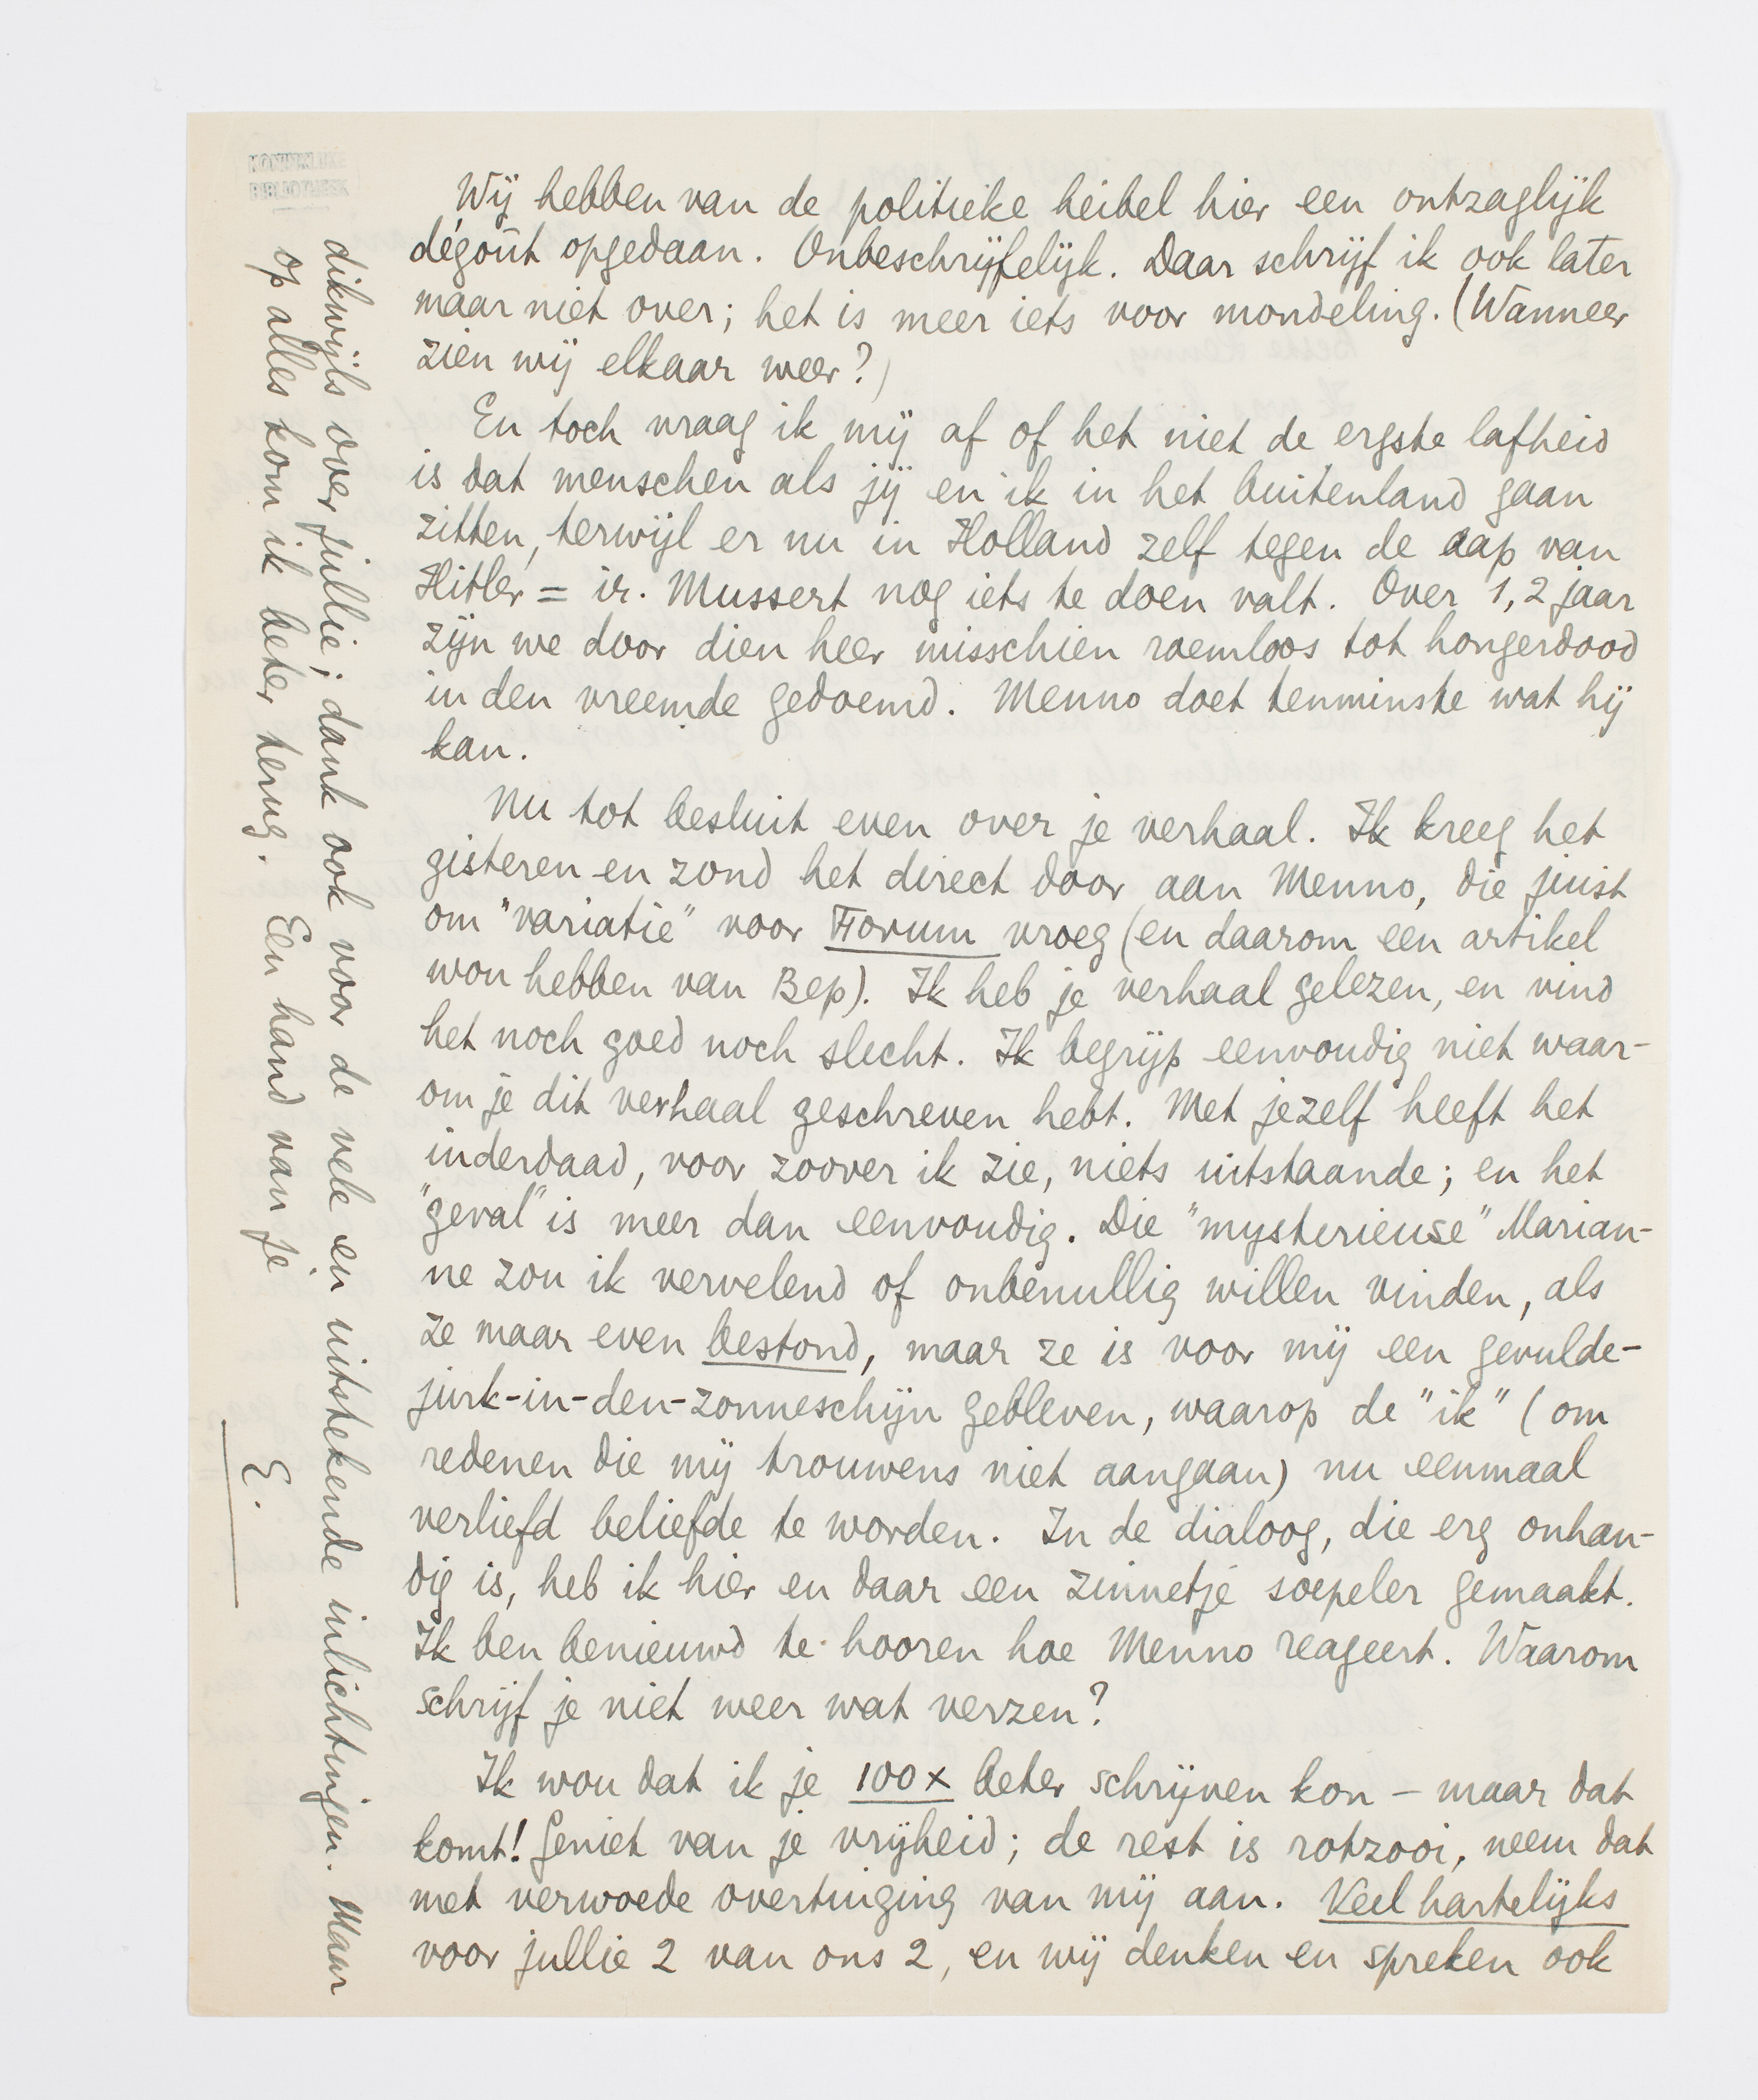 KONINKLIJKE
BIBLIOTHEEK
Wij hebben van de politieke heibel hier een ontzaglijk
dégoût opgedaan. Onbeschrijfelijk. Daar schrijf ik ook later
maar niet over; het is meer iets voor mondeling. (Wanneer
zien wij elkaar weer?)
En toch vraag ik mij af of het niet de ergste lafheid
is dat menschen als jij en ik in het buitenland gaan
zitten, terwijl er nu in Holland zelf tegen de aap van
Hitler = ir. Mussert nog iets te doen valt. Over 1, 2 jaar
zijn we door dien heer misschien roemloos tot hongerdood
in den vreemde gedoemd. Menno doet tenminste wat hij
kan.
Nu tot besluit even over je verhaal. Ik kreeg het
gisteren en zond het direct door aan Menno, die juist
om "variatie" voor Forum vroeg (en daarom een artikel
wou hebben van Bep). Ik heb je verhaal gelezen, en vind
het noch goed noch slecht. Ik begrijp eenvoudig niet waar-
om je dit verhaal geschreven hebt. Met jezelf heeft het
inderdaad, voor zoover ik zie, niets uitstaande; en het
"geval" is meer dan eenvoudig. Die "mysterieuse" Marian-
ne zou ik vervelend of onbenullig willen vinden, als
ze maar even bestond, maar ze is voor mij een gevulde-
jurk-in-den-zonneschijn gebleven, waarop de "ik" (om
redenen die mij trouwens niet aangaan) nu eenmaal
verliefd beliefde te worden. In de dialoog, die erg onhan-
dig is, heb ik hier en daar een zinnetje soepeler gemaakt.
Ik ben benieuwd te hooren hoe Menno reageert. Waarom
schrijf je niet weer wat verzen?
Ik wou dat ik je 100 x beter schrijven kon – maar dat
komt! Geniet van je vrijheid; de rest is rotzooi, neem dat
met verwoede overtuiging van mij aan. Veel hartelijks
voor jullie 2 van ons 2, en wij denken en spreken ook
dikwijls over jullie; dank ook voor de vele èn uitstekende inlichtingen. Maar
op alles kom ik beter terug. Een hand van je
E.